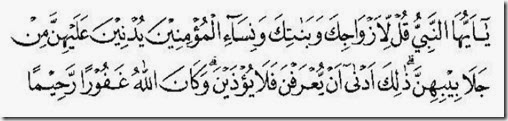 يٰٓاَيُّهَا النَّبِيُّ قُلْ لِّاَزْوَاجِكَ وَبَنٰتِكَ وَنِسَآءِ الْمُؤْمِنِيْنَ يُدْنِيْنَ عَلَيْهِنَّ مِنْ
جَلَابِيْبِهِنَّۗ ذٰلِكَ اَدْنٰٓى اَنْ يُّعْرَفْنَ فَلَا يُؤْذَيْنَۗ وَكَانَ اللّٰهُ غَفُوْرًا رَّحِيْمًا